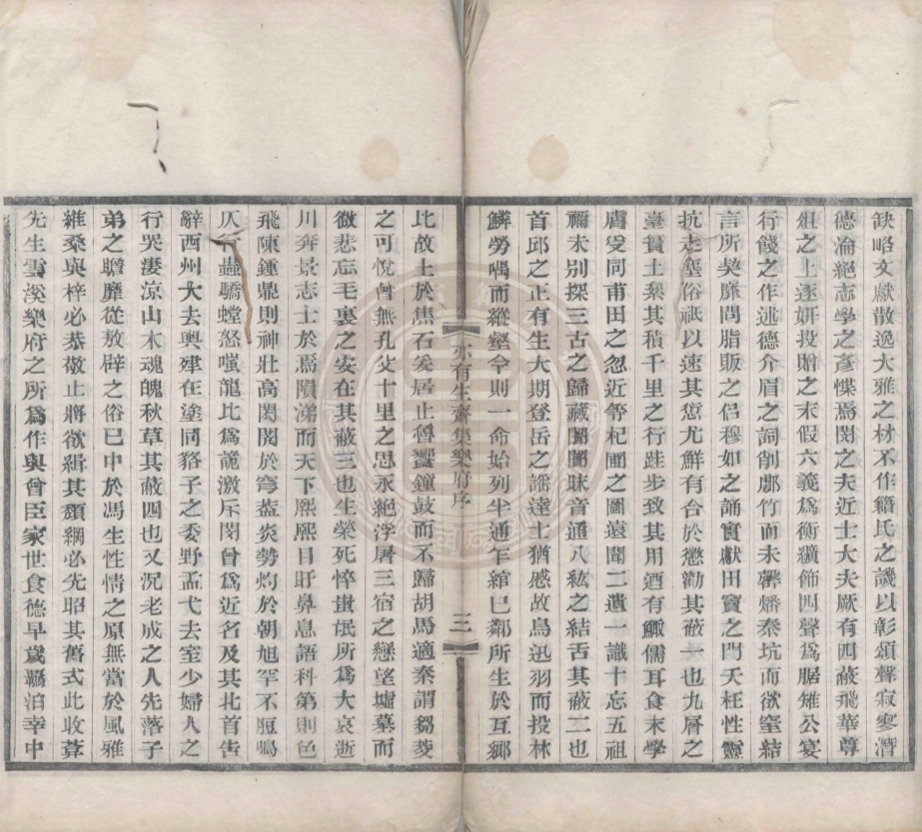 缺略文獻散逸大雅之材不作籍氏之譏以彰頌聲寂寥潛
德淪絕志學之彥惵焉閔之夫近士大夫厥有四蔽飛華尊
俎之上逐妍投贈之末假六義爲衡纊飾四聲爲腒雉公宴
行餞之作述德介眉之詞削鄘竹而未馨燔秦坑而欲窒結
言所契靡問脂販之侶穆如之誦實獻田竇之門夭枉性靈
抗走塵俗祇以速其愆尤鮮有合於懲勸其蔽一也九層之
臺蕢土絫其積千里之行跬步致其用酒有鯫儒耳食末學
膚受同甫田之忽近等杞圃之圖遠聞二遺一識十忘五祖
禰未別探三古之歸藏閨闥昧音通八紘之結舌其蔽二也
首邱之正有生大期登岳之謠達士猶感故鳥迅羽而投林
鱗勞喁而縱壑今則一命始列半通乍綰巳鄰所生於互鄉
亦有生齋集樂府序 三
比故土於焦石爰居止魯饗鐘鼓而不歸胡馬適秦謂芻茭
之可悅曾無孔父十里之思永絕浮屠三宿之戀望墟墓而
微悲忘毛裏之安在其蔽三也生榮死悴蚩氓所爲大哀逝
川奔景志士於焉隕涕而天下熙熙目盱鼻息語科第則色
飛陳鍾鼎則神壯高閎閱於穹蓋炎勢灼於朝旭罕不脰鳴
仄行蟲驕螳怒嗤龍比爲詭激斥閔曾爲近名及其北首告
辭西州大去輿建在塗同貉子之委野盂弋去室少婦人之
行哭凄涼山木魂魄秋草其蔽四也又況老成之人先落子
弟之瞻靡從敖辟之俗已中於馮生性情之原無當於風雅
維桑與梓必恭敬止將欲緝其頽綱必先昭其舊式此收葊
先生雲溪樂府之所爲作與曾臣家世食德早歲飄泊幸中